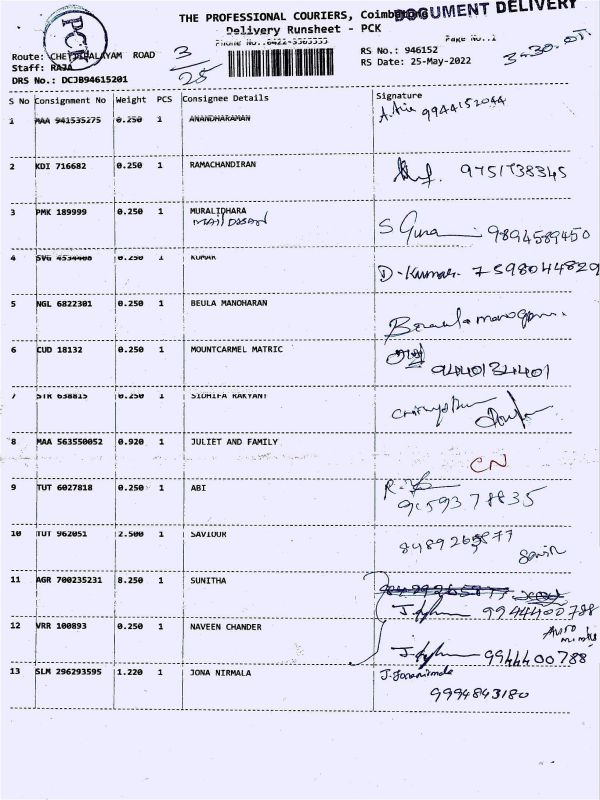 THE PROFESSIONAL COURIERS, Coimbatore
DOCUMENT DELIVERY
Delivery Runsheet - PCK
Phone No.:0422-3363333
Page No.:1
PCI
Route: CHETTIPALAYAM ROAD
3/25
RS No.: 946152
3-30.
Staff: RAJA
RS Date: 25-May-2022
DRS No.: DCJB94615201
S No Consignment No Weight PCS Consignee Details Signature
1 MAA 941535275 0.250 1 ANANDHARAMAN 9944152044
2 KDI 716682 0.250 1 RAMACHANDIRAN 9751738345
3 PMK 189999 0.250 1 MURALIDHARA S Guna 9894589450
4 SVG 4534408 0.250 1 KUMAR D-Kumar 7598044829
5 NGL 6822301 0.250 1 BEULA MANOHARAN
6 CUD 18132 0.250 1 MOUNTCARMEL MATRIC 9440134401
7 STR 638815 0.250 1 SIDHIFA RAKYANT
8 MAA 563550052 0.920 1 JULIET AND FAMILY CN
9 TUT 6027818 0.250 1 ABI 9159378835
10 TUT 962051 2.500 1 SAVIOUR 8489265877
Savio
11 AGR 700235231 8.250 1 SUNITHA
9944400788
12 VRR 100893 0.250 1 NAVEEN CHANDER
9944400788
13 SLM 296293595 1.220 1 JONA NIRMALA J. Jonanirmala
9994843180